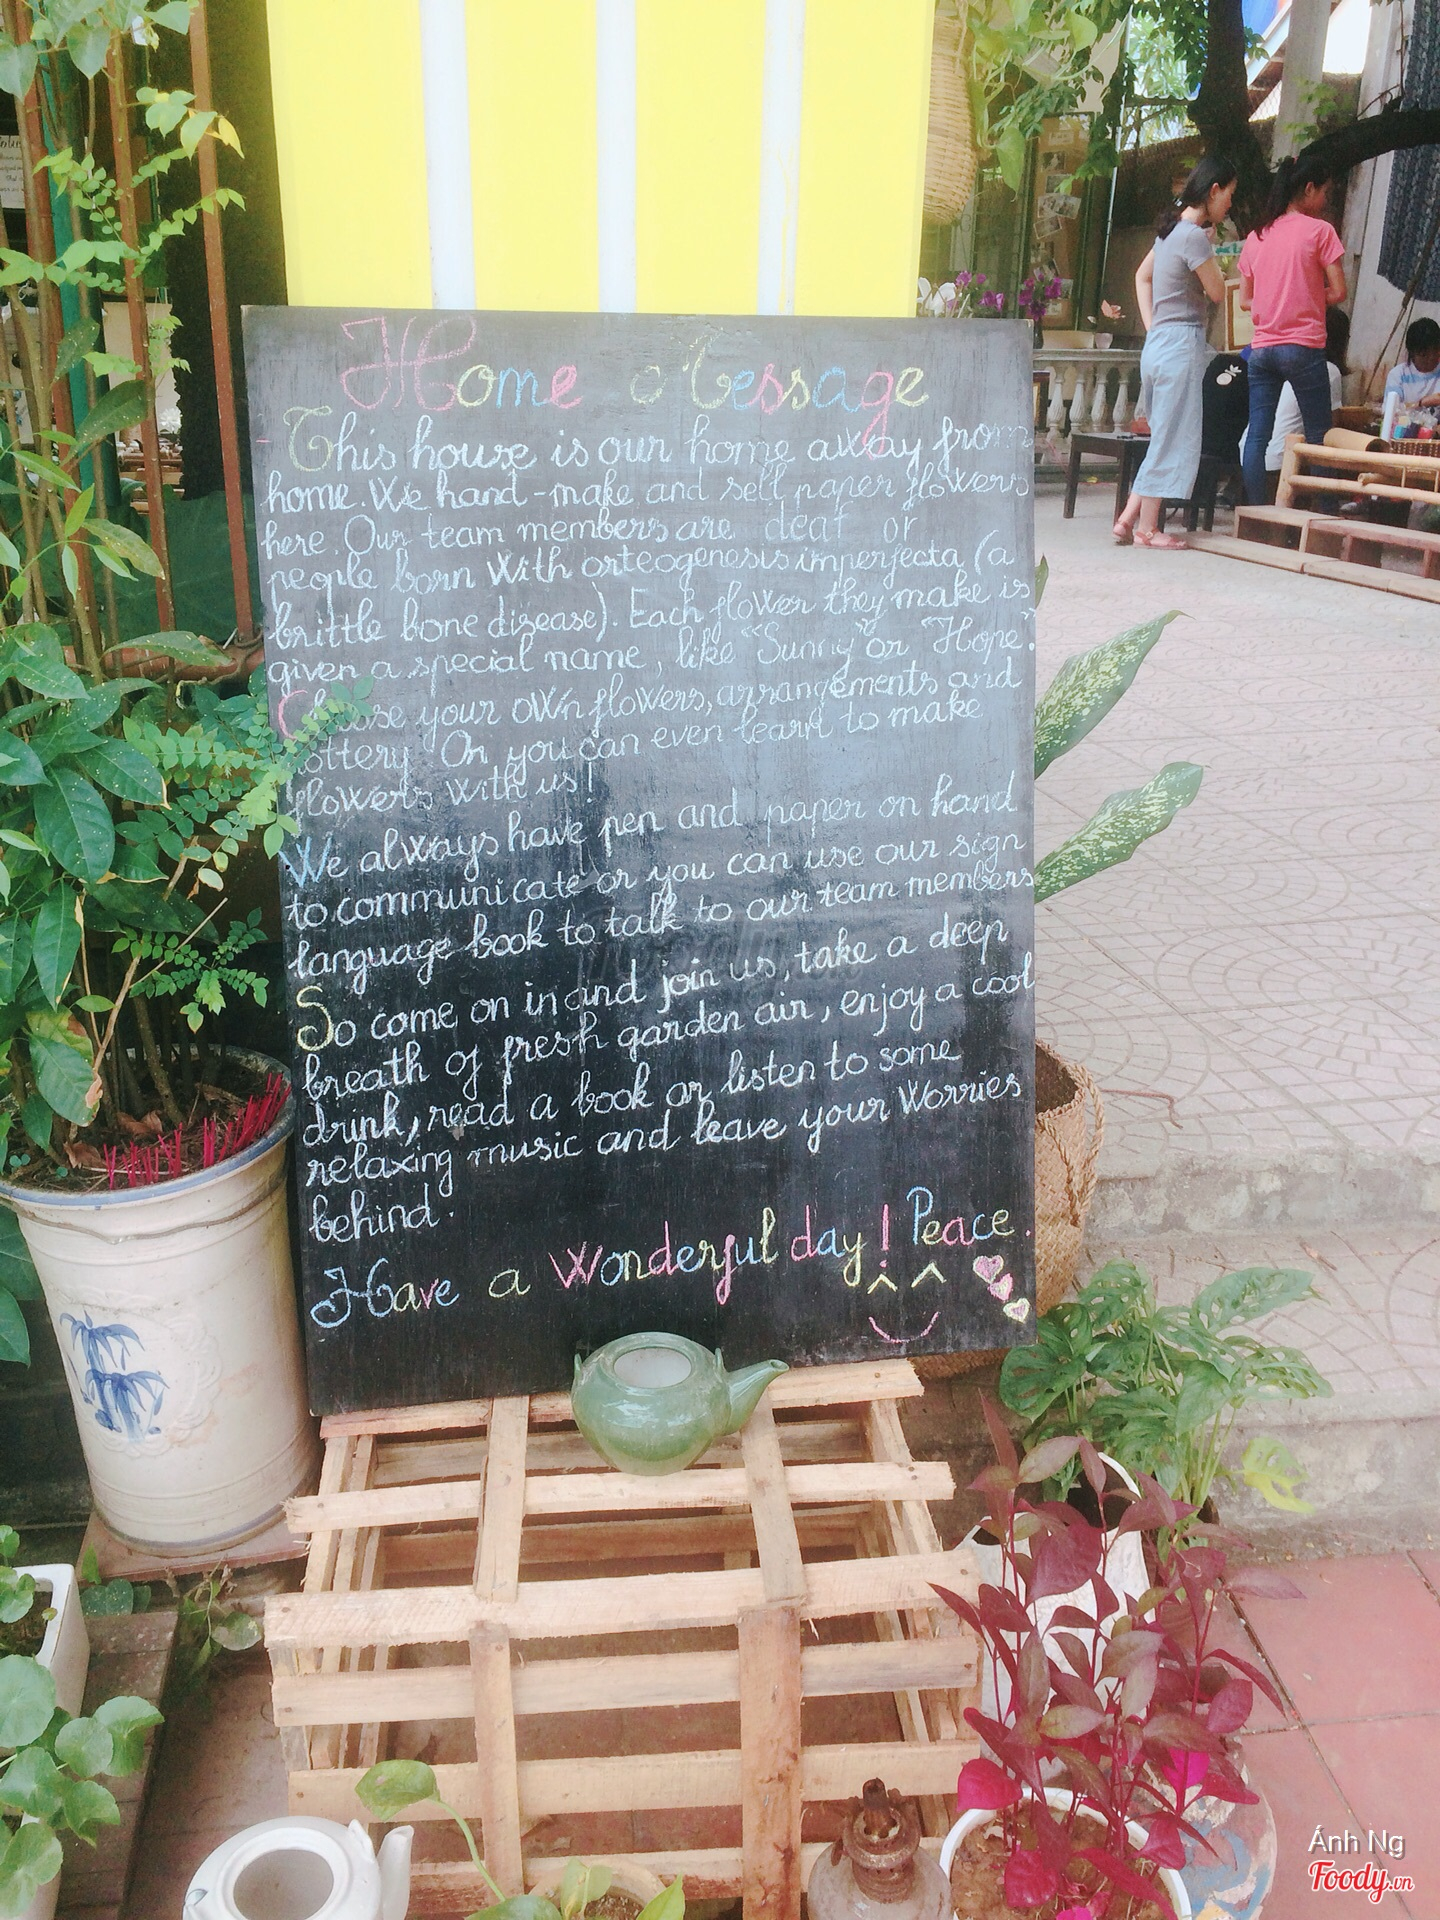 Home Message
- This house is our home away from
home. We hand-make and sell paper flowers
here. Our team members are deaf or
people born with orteogenesis imperfecta (a
brittle bone disease). Each flower they make is
given a special name, like "Sunny" or "Hope."
Choose your own flowers, arrangements and
pottery. Or you can even learn to make
flowers with us!
We always have pen and paper on hand
to communicate or you can use our sign
language book to talk to our team members
So come on in and join us, take a deep
breath of fresh garden air, enjoy a cool
drink, read a book or listen to some
relaxing music and leave your worries
behind.
Have a wonderful day! Peace.
Foody
Ánh Ng
Foody.vn